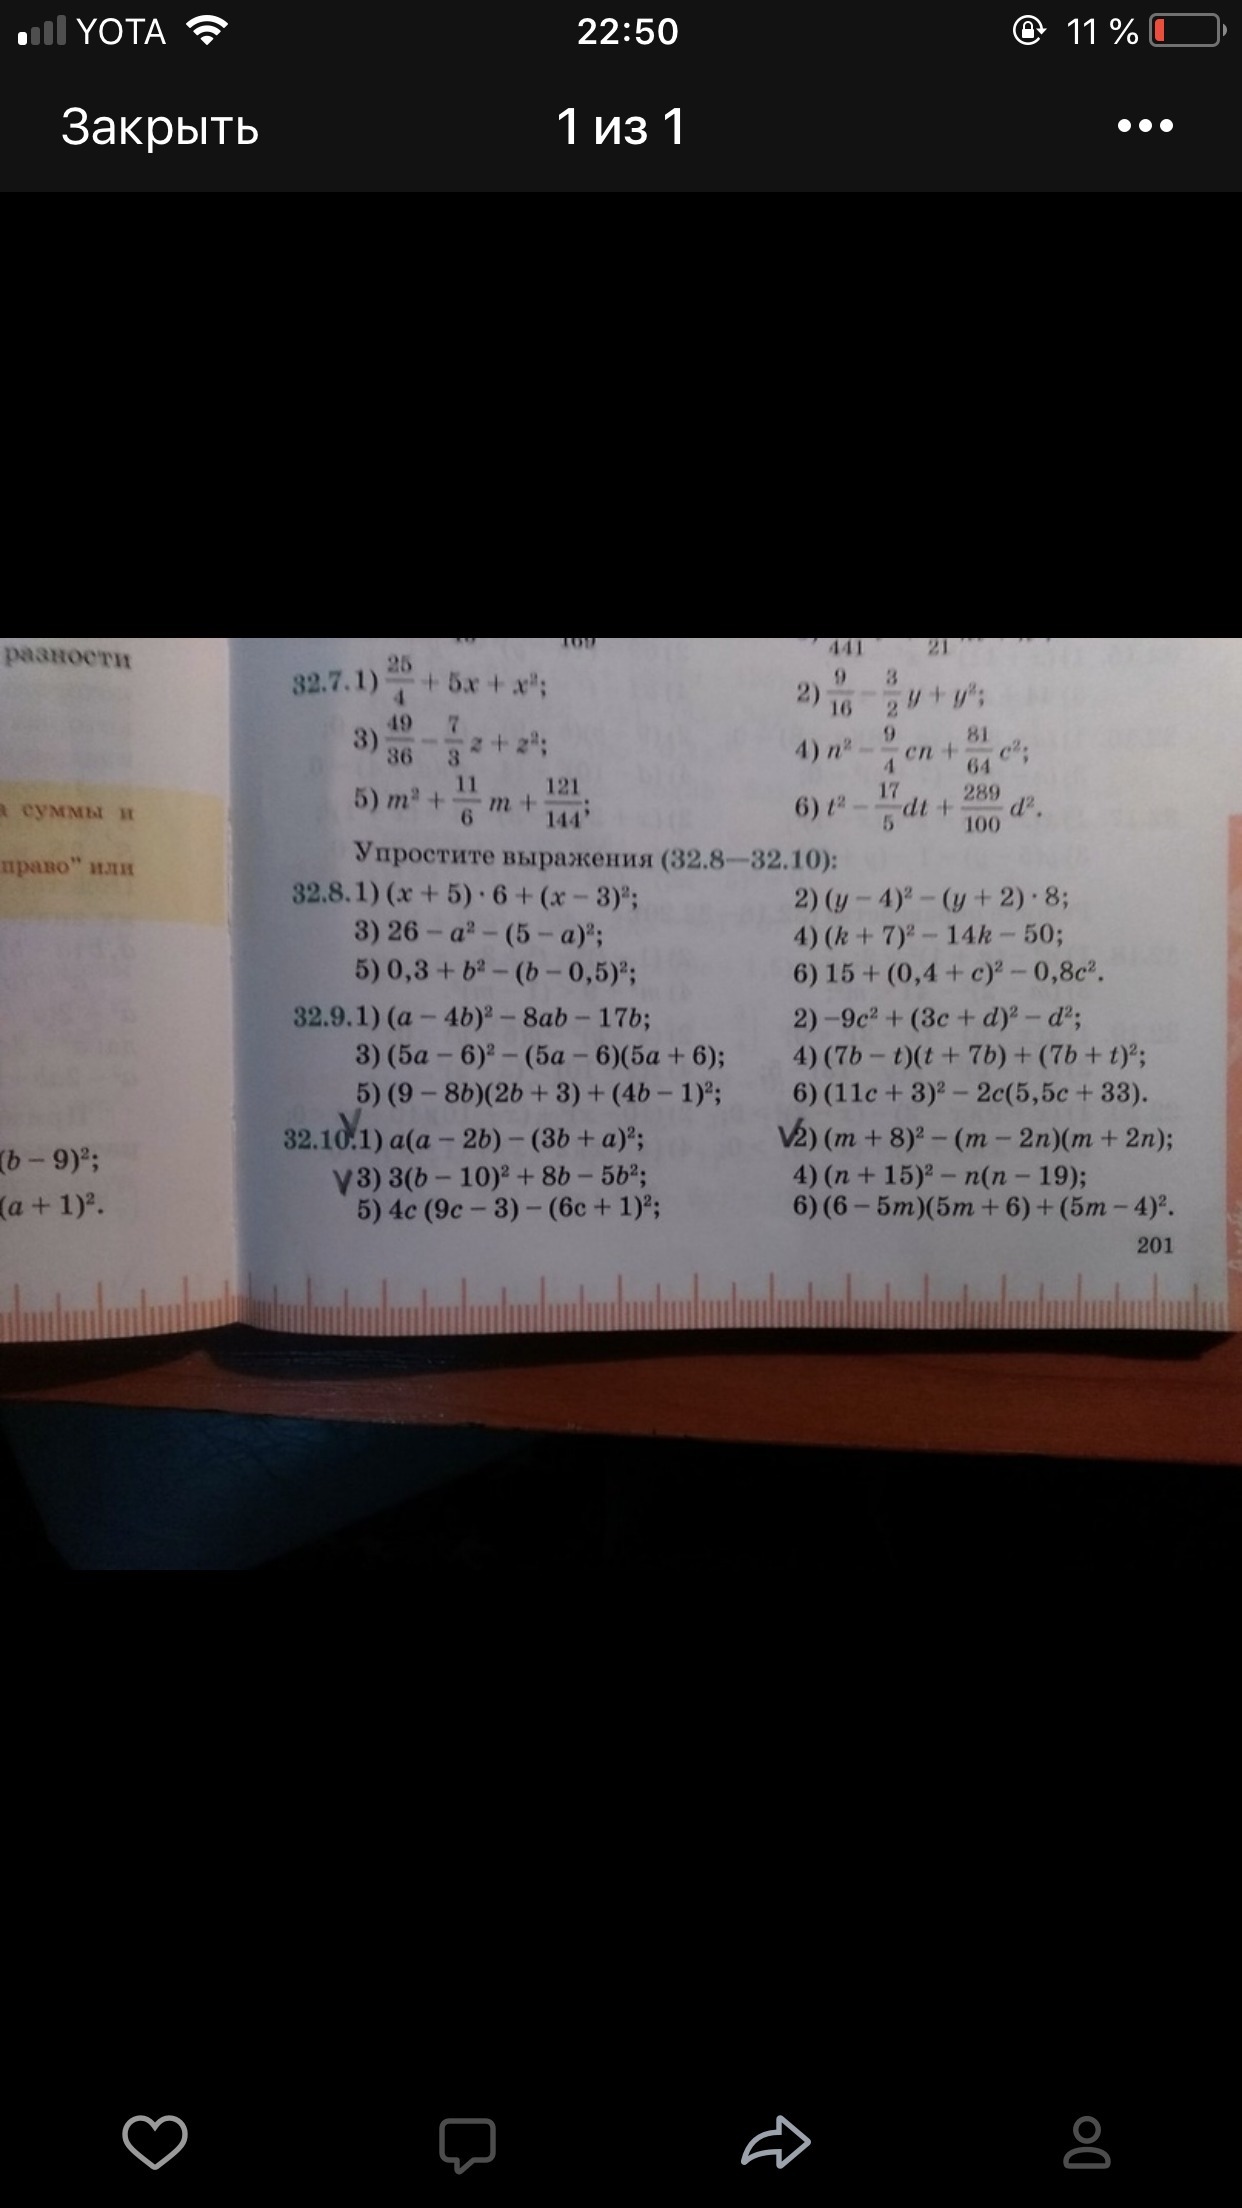 YOTA 22:50 11 %
Закрыть 1 из 1 •••
разности
169
441 21
32.7. 1) 25/4 + 5x + x²; 2) 9/16 − 3/2 y + y²;
3) 49/36 − 7/3 z + z²; 4) n² − 9/4 cn + 81/64 c²;
5) m² + 11/6 m + 121/144; 6) t² − 17/5 dt + 289/100 d².
суммы и
право" или
Упростите выражения (32.8—32.10):
32.8. 1) (x + 5) · 6 + (x − 3)²; 2) (y − 4)² − (y + 2) · 8;
3) 26 − a² − (5 − a)²; 4) (k + 7)² − 14k − 50;
5) 0,3 + b² − (b − 0,5)²; 6) 15 + (0,4 + c)² − 0,8c².
32.9. 1) (a − 4b)² − 8ab − 17b; 2) −9c² + (3c + d)² − d²;
3) (5a − 6)² − (5a − 6)(5a + 6); 4) (7b − t)(t + 7b) + (7b + t)²;
5) (9 − 8b)(2b + 3) + (4b − 1)²; 6) (11c + 3)² − 2c(5,5c + 33).
32.10. V 1) a(a − 2b) − (3b + a)²; V 2) (m + 8)² − (m − 2n)(m + 2n);
V 3) 3(b − 10)² + 8b − 5b²; 4) (n + 15)² − n(n − 19);
5) 4c (9c − 3) − (6c + 1)²; 6) (6 − 5m)(5m + 6) + (5m − 4)².
(b − 9)²;
(a + 1)².
201